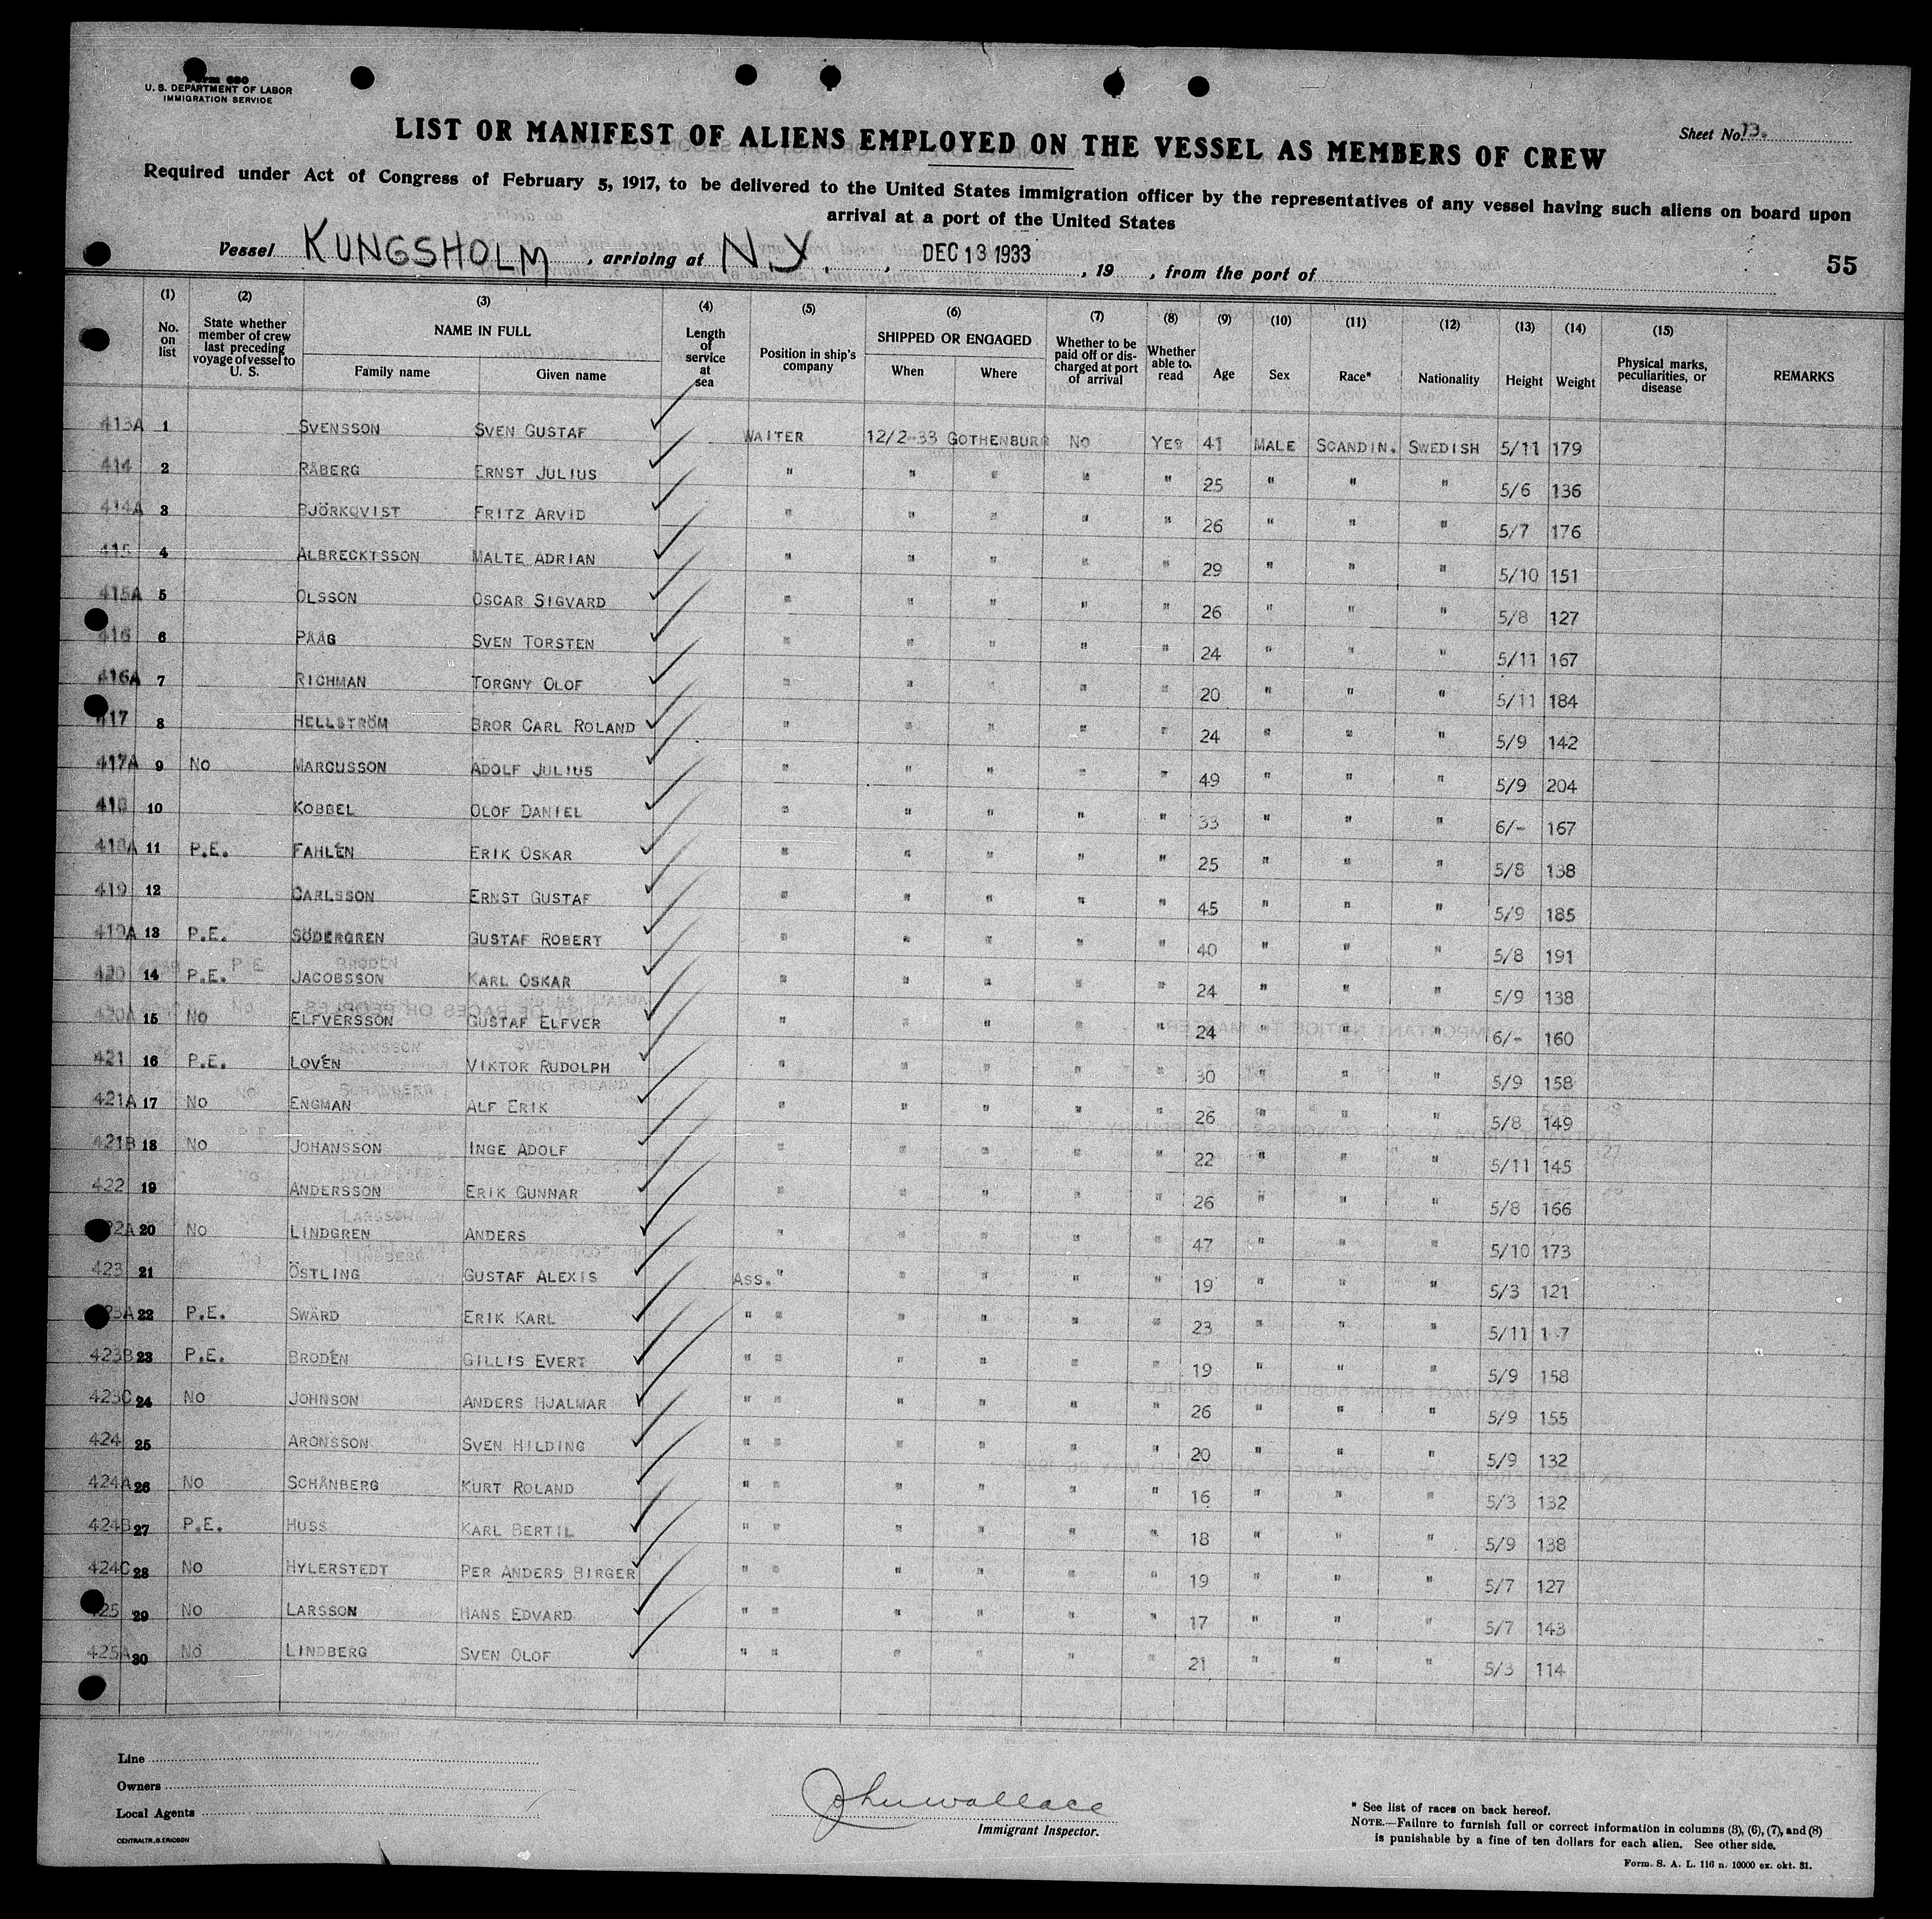 Form 680
U. S. DEPARTMENT OF LABOR
IMMIGRATION SERVICE
Sheet No. 13.
LIST OR MANIFEST OF ALIENS EMPLOYED ON THE VESSEL AS MEMBERS OF CREW
Required under Act of Congress of February 5, 1917, to be delivered to the United States immigration officer by the representatives of any vessel having such aliens on board upon
arrival at a port of the United States
Vessel KUNGSHOLM, arriving at N.Y., DEC 13 1933, 19 , from the port of
55
(1) (2) (3) (4) (5) (6) (7) (8) (9) (10) (11) (12) (13) (14) (15)
No. on list
State whether member of crew last preceding voyage of vessel to U. S.
NAME IN FULL
Family name
Given name
Length of service at sea
Position in ship's company
SHIPPED OR ENGAGED
When
Where
Whether to be paid off or discharged at port of arrival
Whether able to read
Age
Sex
Race*
Nationality
Height
Weight
Physical marks, peculiarities, or disease
REMARKS
413A 1 SVENSSON SVEN GUSTAF WAITER 12/2-33 GOTHENBURG NO YES 41 MALE SCANDIN. SWEDISH 5/11 179
414 2 RÅBERG ERNST JULIUS " " " " " 25 " " " 5/6 136
414A 3 BJÖRKQVIST FRITZ ARVID " " " " " 26 " " " 5/7 176
415 4 ALBRECKTSSON MALTE ADRIAN " " " " " 29 " " " 5/10 151
415A 5 OLSSON OSCAR SIGVARD " " " " " 26 " " " 5/8 127
416 6 PÅÅG SVEN TORSTEN " " " " " 24 " " " 5/11 167
416A 7 RICHMAN TORGNY OLOF " " " " " 20 " " " 5/11 184
417 8 HELLSTRÖM BROR CARL ROLAND " " " " " 24 " " " 5/9 142
417A 9 NO MARCUSSON ADOLF JULIUS " " " " " 49 " " " 5/9 204
418 10 KOBBEL OLOF DANIEL " " " " " 33 " " " 6/- 167
418A 11 P.E. FAHLÉN ERIK OSKAR " " " " " 25 " " " 5/8 138
419 12 CARLSSON ERNST GUSTAF " " " " " 45 " " " 5/9 185
419A 13 P.E. SÖDERGREN GUSTAF ROBERT " " " " " 40 " " " 5/8 191
420 14 P.E. JACOBSSON KARL OSKAR " " " " " 24 " " " 5/9 138
420A 15 NO ELFVERSSON GUSTAF ELFVER " " " " " 24 " " " 6/- 160
421 16 P.E. LOVÉN VIKTOR RUDOLPH " " " " " 30 " " " 5/9 158
421A 17 NO ENGMAN ALF ERIK " " " " " 26 " " " 5/8 149
421B 18 NO JOHANSSON INGE ADOLF " " " " " 22 " " " 5/11 145
422 19 ANDERSSON ERIK GUNNAR " " " " " 26 " " " 5/8 166
22A 20 NO LINDGREN ANDERS " " " " " 47 " " " 5/10 173
423 21 ÖSTLING GUSTAF ALEXIS ASS. " " " " " 19 " " " 5/3 121
23A 22 P.E. SWÄRD ERIK KARL " " " " " " 23 " " " 5/11
423B 23 P.E. BRODÉN GILLIS EVERT " " " " " " 19 " " " 5/9 158
423C 24 NO JOHNSON ANDERS HJALMAR " " " " " " 26 " " " 5/9 155
424 25 ARONSSON SVEN HILDING " " " " " " 20 " " " 5/9 132
424A 26 NO SCHÅNBERG KURT ROLAND " " " " " " 16 " " " 5/3 132
424B 27 P.E. HUSS KARL BERTIL " " " " " " 18 " " " 5/9 138
424C 28 NO HYLERSTEDT PER ANDERS BIRGER " " " " " " 19 " " " 5/7 127
25 29 NO LARSSON HANS EDVARD " " " " " " 17 " " " 5/7 143
425A 30 NO LINDBERG SVEN OLOF " " " " " " 21 " " " 5/3 114
Line
Owners
Local Agents
CENTRALTR. G. ERICSON
John Wallace
Immigrant Inspector.
* See list of races on back hereof.
NOTE.—Failure to furnish full or correct information in columns (3), (6), (7), and (8)
is punishable by a fine of ten dollars for each alien. See other side.
Form. S. A. L. 116 n. 10000 ex. okt. 31.